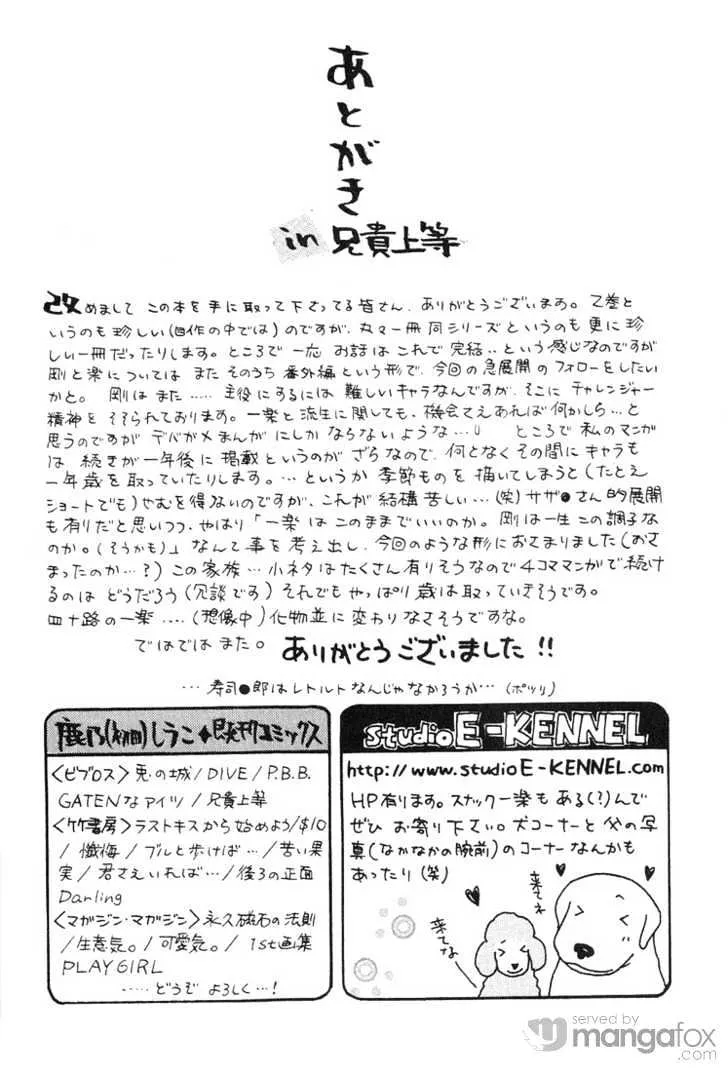 あとがき
in 兄貴上等
改めまして この本を手に取って下さってる皆さん、ありがとうございます。2巻と
いうのも珍しい(自作の中では)のですが、丸々一冊同シリーズというのも更に珍
しい一冊だったりします。ところで一応 お話は これで完結‥という感じなのですが
剛と楽については また そのうち 番外編という形で、今回の急展開のフォローをしたい
かと。 剛は また‥‥‥主役にするには 難しいキャラなんですが、そこに チャレンジャー
精神を そそられております。一楽と流生に関しても、機会さえあれば何かしら…と
思うのですが デバガメまんがにしか ならないような…。 ところで 私のマンガ
は 続きが一年後に 掲載というのが ざらなので、何となく その間に キャラも
一年歳を取っていたりします。…というか 季節ものを 描いてしまうと(たとえ
ショートでも)やむを得ないのですが、これが結構苦しい…(笑) サザ●さん的展開
も有りだと思いつつ、やはり「一楽は このままでいいのか。剛は一生 この調子な
のか。(そうかも)」なんて事を考え出し、今回のような形におさまりました(おさ
まったのか…?)この家族… 小ネタはたくさん有りそうなので4コママンガで続け
るのは どうだろう(冗談です)それでもやっぱり歳は取っていきそうです。
四十路の一楽‥‥(想像中)化物並に変わりなさそうですな。
ではでは また。 ありがとうございました!!
…寿司●郎はレトルトなんじゃなかろうか…(ポツリ)
鹿乃(初田)しうこ◆既刊コミックス
<ビブロス>兎の城/DIVE/P.B.B.
GATENなアイツ/兄貴上等
<竹書房>ラストキスから始めよう/$10
/ 懺悔 / ブルと歩けば… /苦い果
実/君さえいれば…/後ろの正面
Darling
<マガジン・マガジン>永久磁石の法則
/生意気。/可愛気。/ 1st画集
PLAY GIRL
‥‥‥どうぞ よろしく…!
studio E-KENNEL
http://www.studioE-KENNEL.com
HP有ります。スナック一楽も ある(?)んで
ぜひ お寄り下さい。犬コーナーと 父の写
真(なかなかの腕前)のコーナーなんかも
あったり(笑)
来てネ
来てな
served by
mangafox
.com